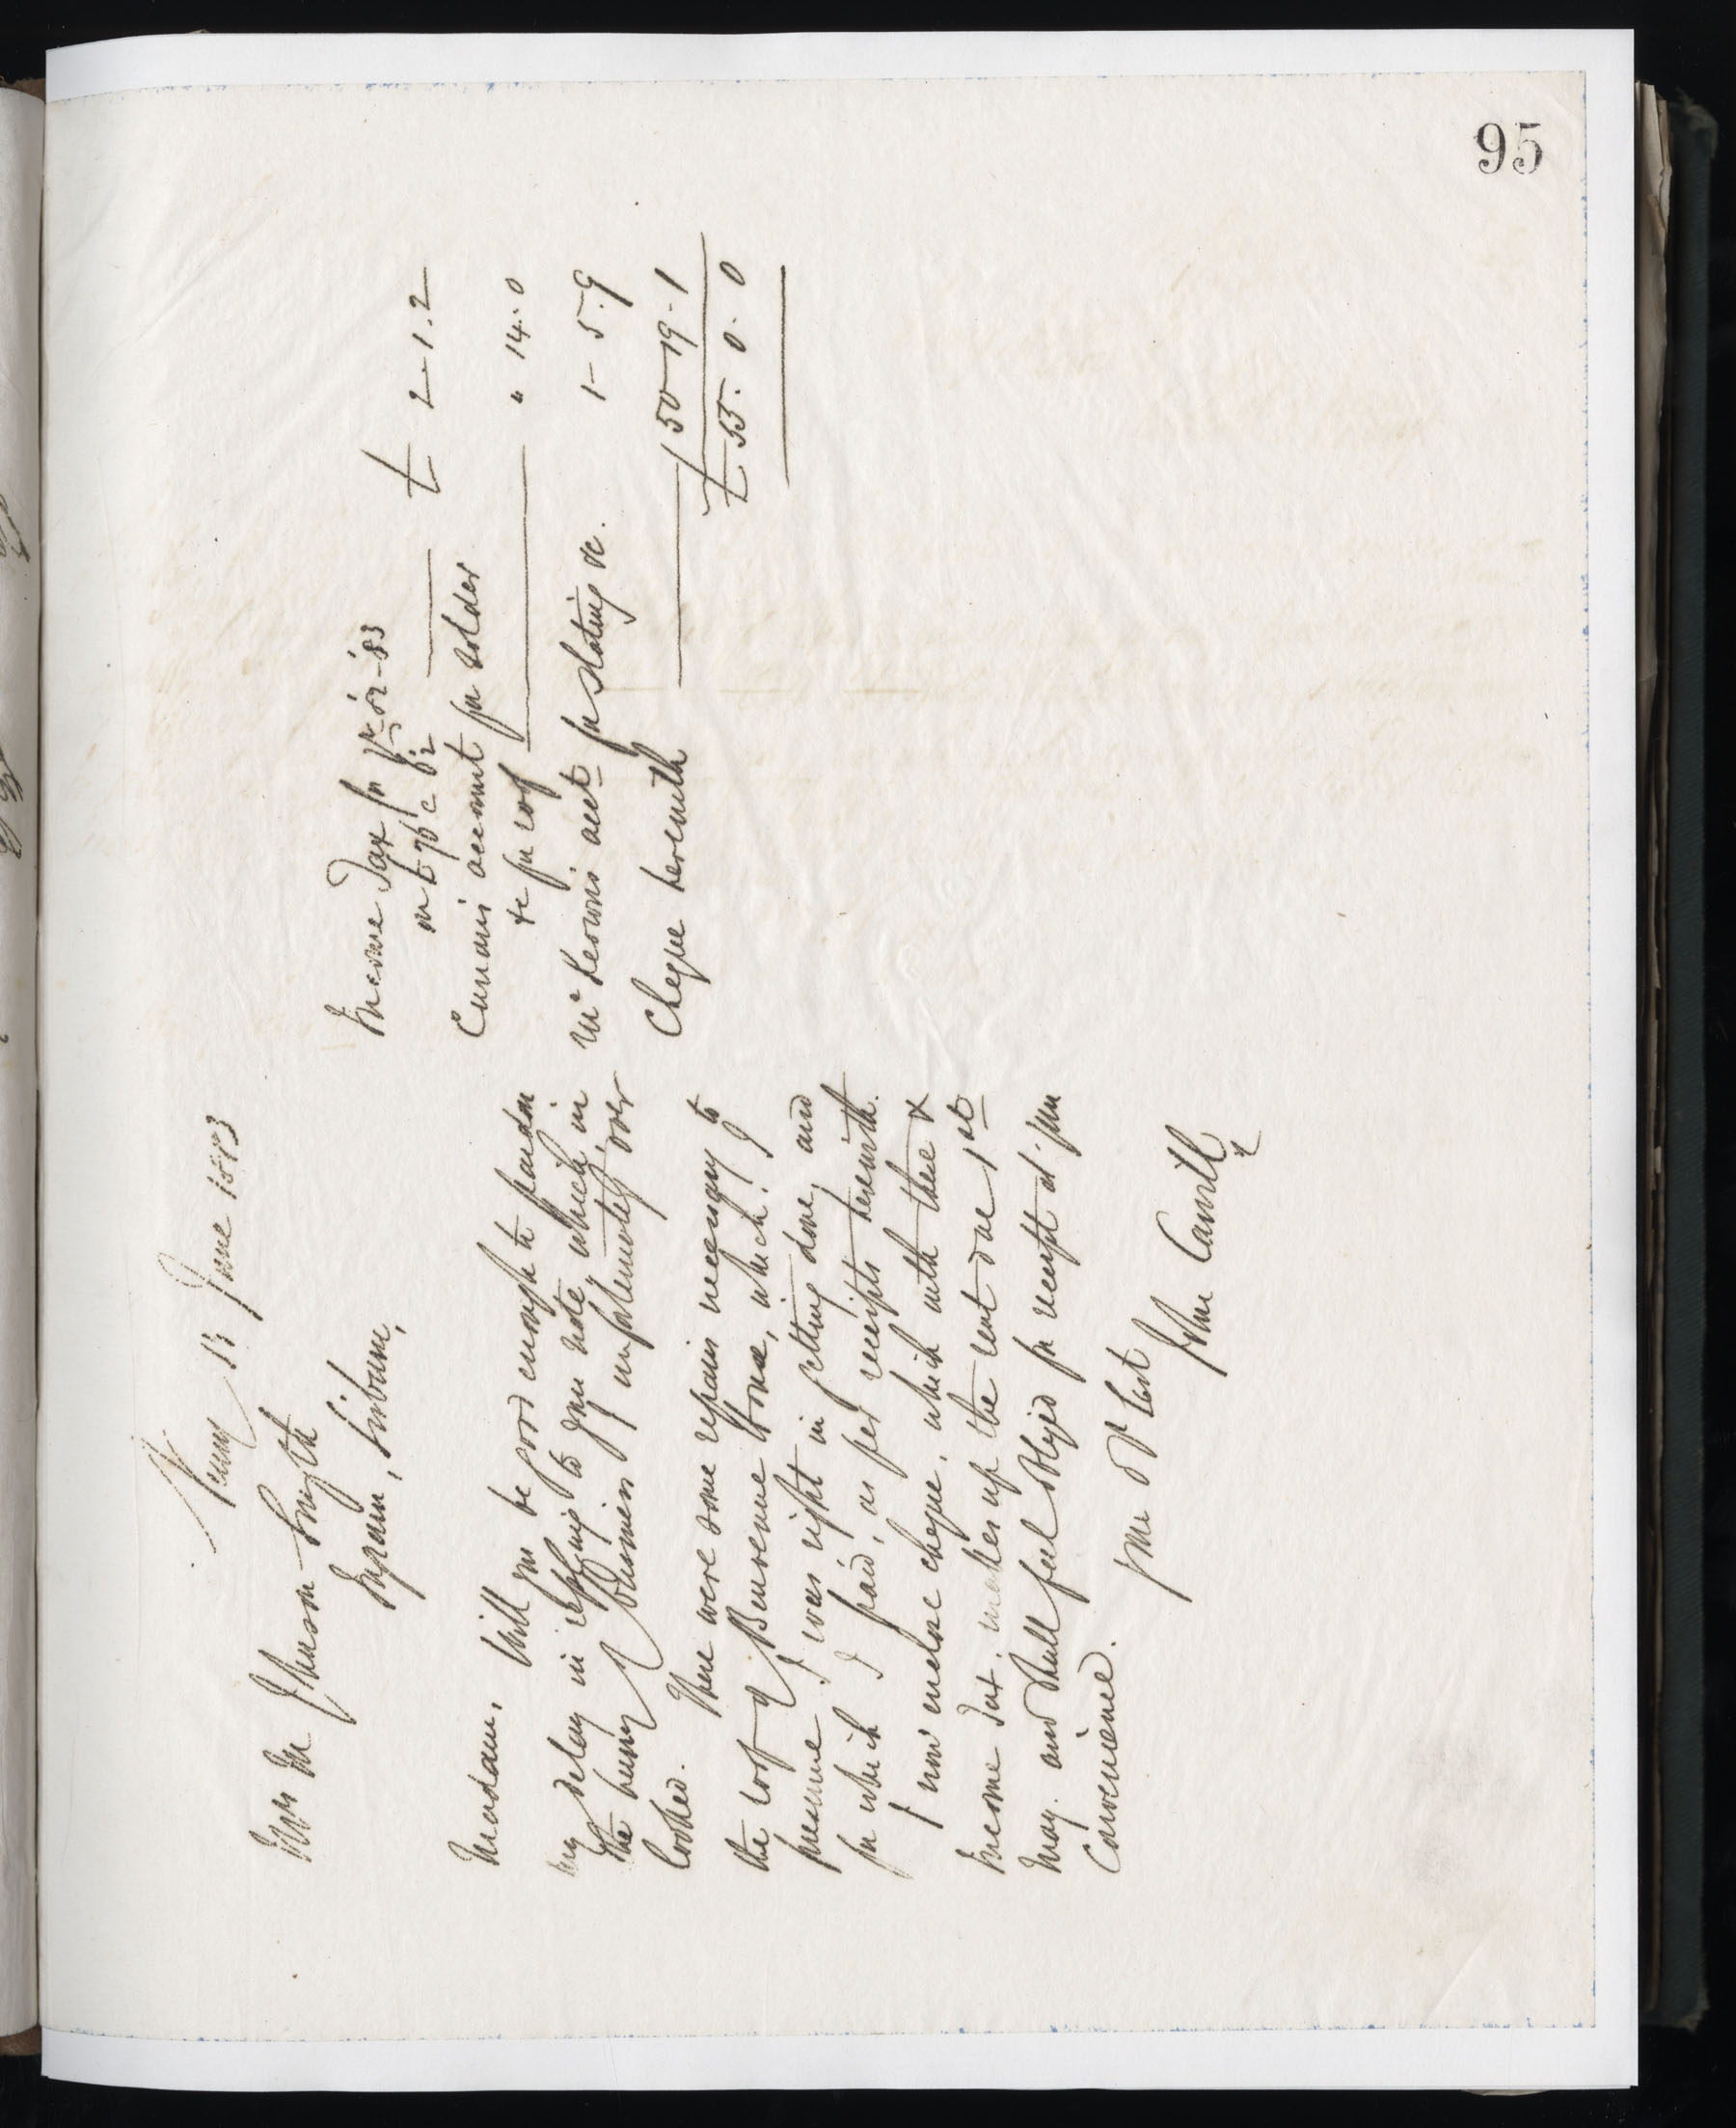 95
Newry 13 June 1883
Mrs M Thomson Smyth
Lisburn,
Madam, Will you be good enough to pardon
my delay in replying to your note, which, in
the hurry of business I unfortunately over
looked. There were some repairs necessary to
the roof of Benvenue House, which I
presume I was right in getting done, and
for which I paid, as per receipts herewith.
I now enclose cheque, which with these &
Income Tax, makes up the rent due 1st
May. and shall feel obliged for receipt at your
convenience.
your ob st
John Carvill
Income Tax for yr '82-'83
on £76 @ 6½ £ 2-1.2
Curran's account for solder
&c for roof " 14.0
McKeown's acct for slating &c. 1-5.9
Cheque herewith 50-19-1
£55.0.0